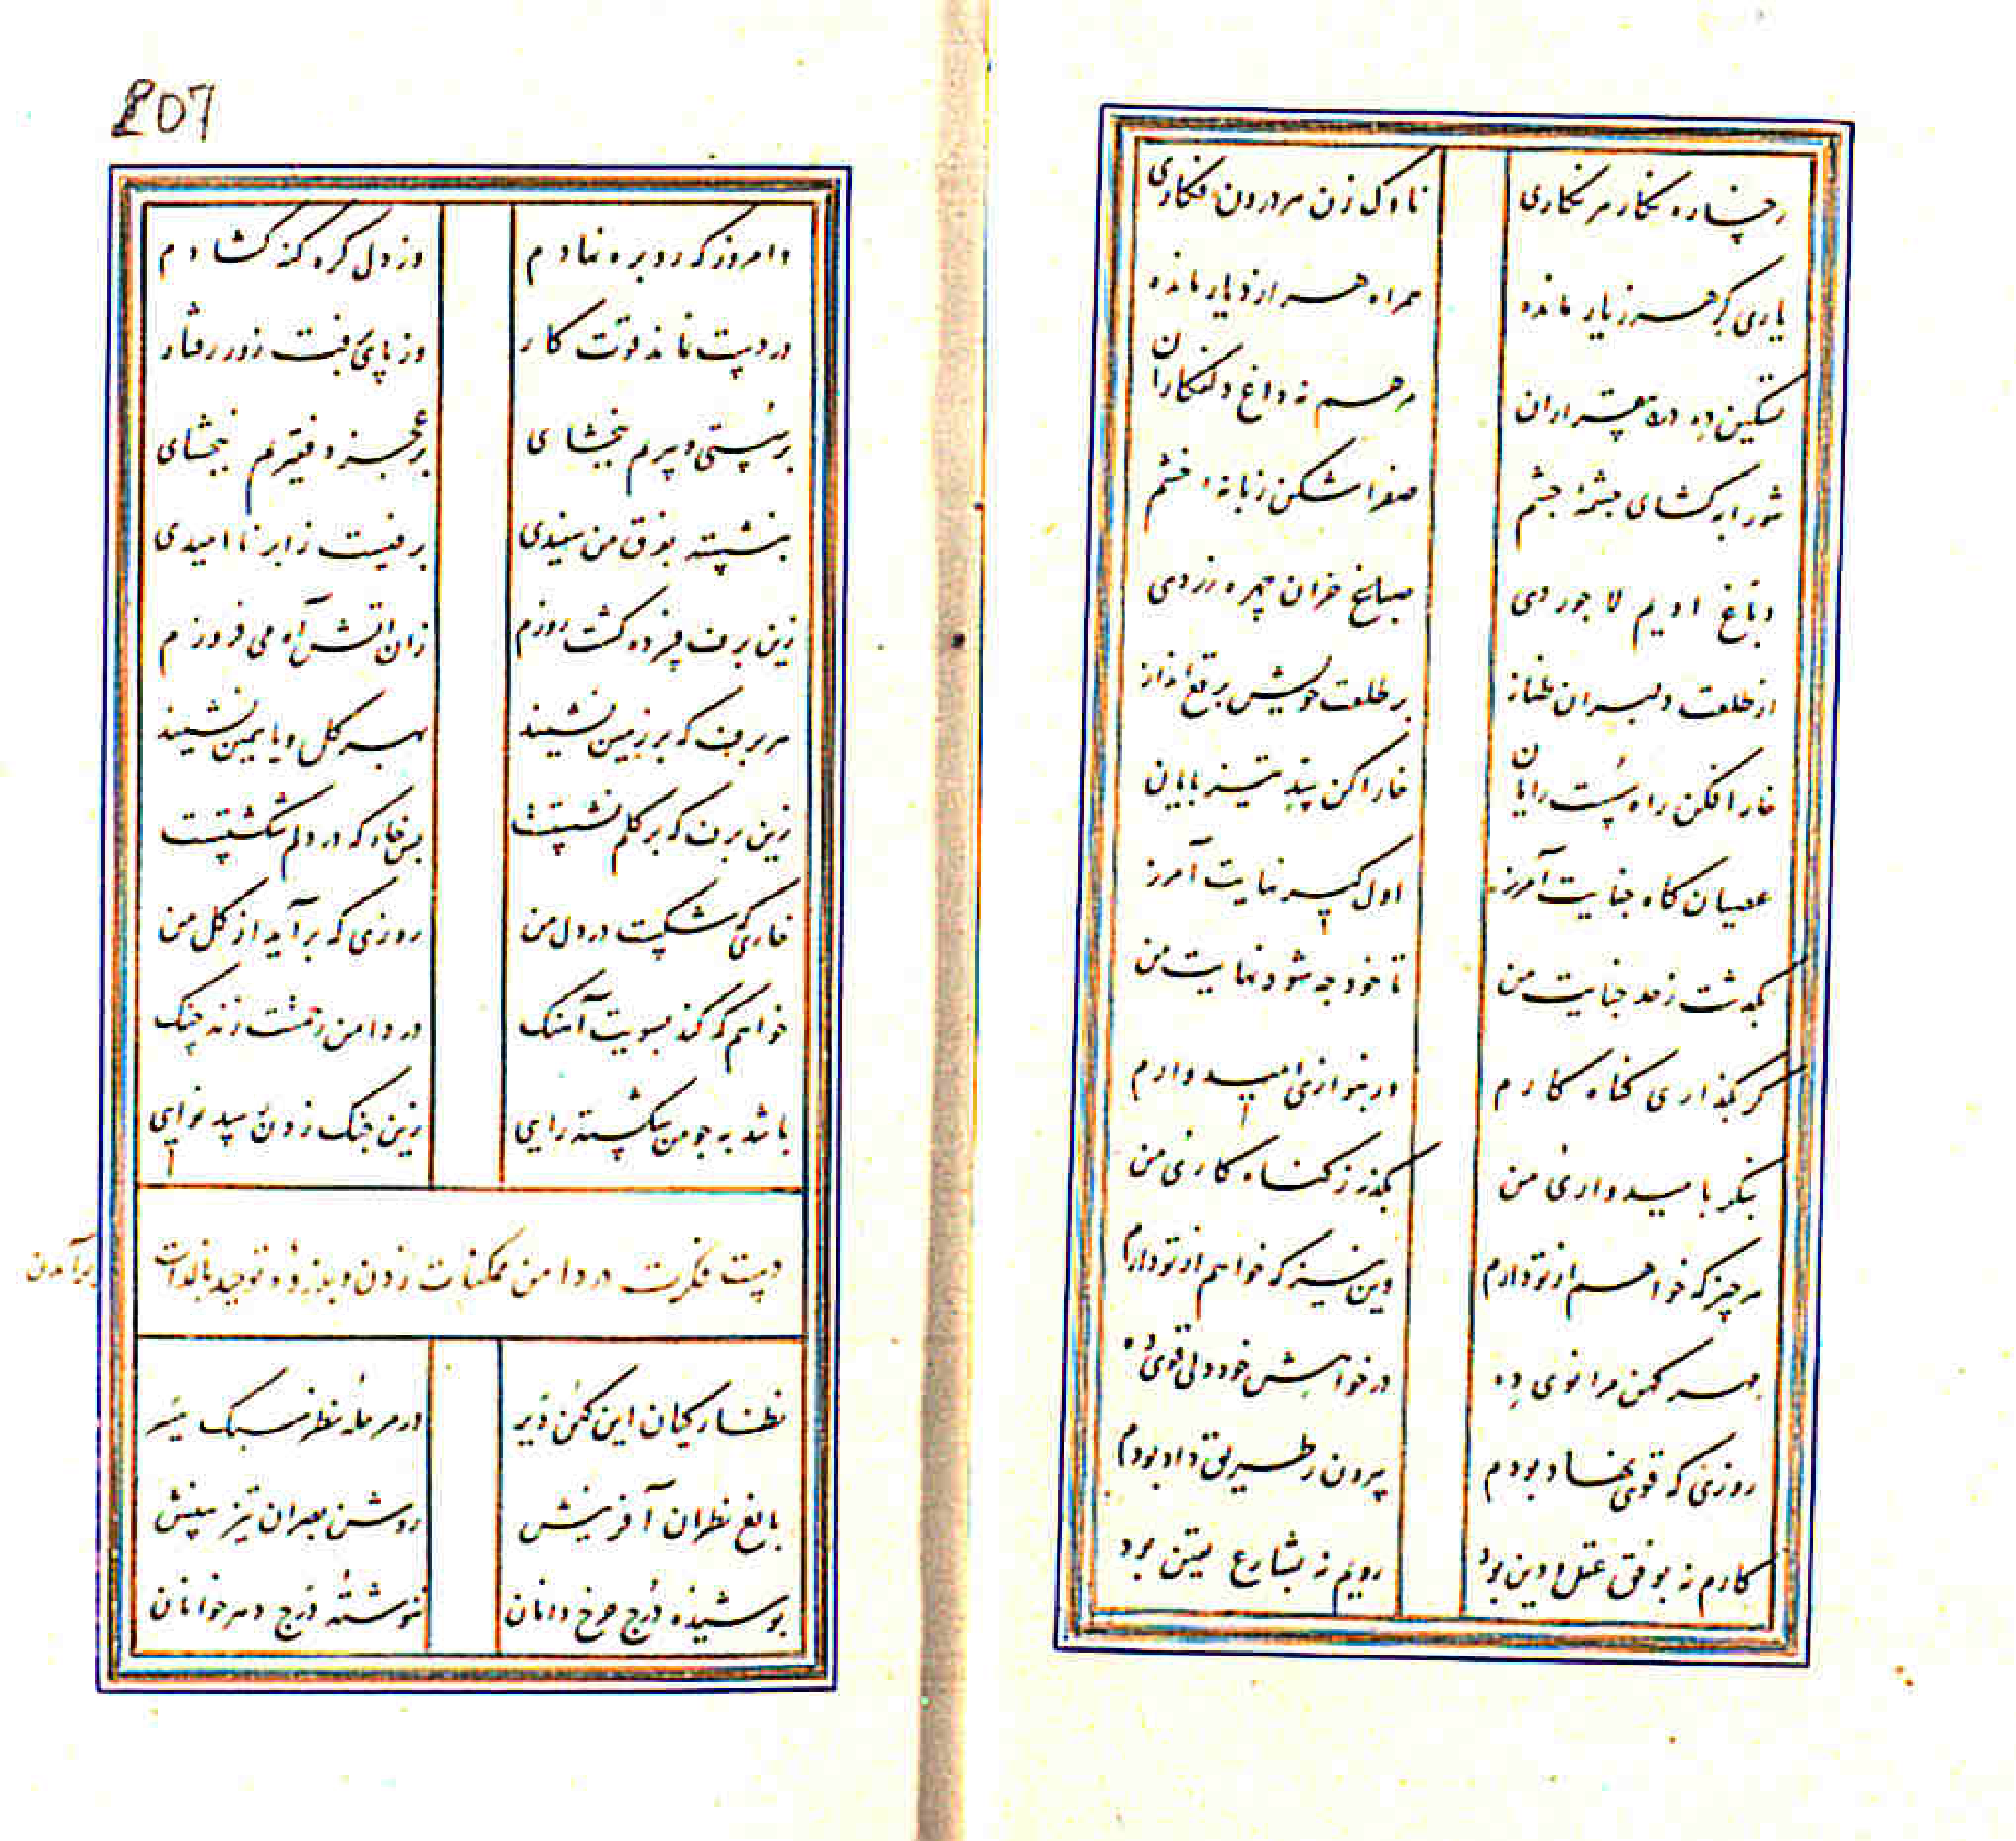 رخساره نگار هر نگاری ناوک زن هر درون فکاری
یاری گر هر زیار مانده همراه هر از دیار مانده
تسکین ده درد بیقراران مرهم نه داغ دلفکاران
شورابه کشای چشمهٔ چشم صفرا شکن زبانهٔ خشم
دباغ ادیم لاجوردی صباغ خزان چهره زردی
از طلعت دلبران طناز بر طلعت خویش برقع انداز
خار افکن راه سست رایان خار اکن پند تیز پایان
عصیان کاه جنایت آمرز اول گیر نهایت آمرز
بگذشت زحد جنایت من تا خود چه شود نهایت من
گر بگذاری گناه کارم ور بنوازی امیدوارم
بنگر بامیدواری من بگذر ز گناه کاری من
هر چیز که خواهم از تو دارم وین نیز که خواهم از تو دارم
بهر کهن مرا نوی ده در خواهش خود دلی قوی ده
روزی که قوی نهاد بودم بیرون ز طریق داد بودم
کارم نه بوفق عقل و دین بود رویم نه بشارع یقین بود
207
وامروز که رو بره نهادم وز دل گره گنه کشادم
در دست نماند قوت کار وز پای برفت زور رفتار
بر سستی و پیریم ببخشای بر عجز و فقیریم ببخشای
بنشسته بفرق من سفیدی برفیست ز ابر ناامیدی
زین برف فسرده گشت روزم زان آتش آه می فروزم
هر برف که بر زمین نشیند بهر گل و یاسمین نشیند
زین برف که بر گلم نشستست بس خار که در دلم شکستست
خاری که شکست در دل من روزی که برآید از گل من
خواهم که کند بسویت آهنگ در دامن رحمتت زند چنگ
باشد به چو من شکسته رایی زین چنگ زدن رسد نوایی
دست فکرت در دامن ممکنات زدن و بدروهٔ توحید بالذات برآمدن
نظارگیان این کهن دیر در مرحلهٔ نظر سبک سیر
بالغ نظران آفرینش روشن بصران تیز بینش
پوشیده درج چرخ دانان ننوشتهٔ درج دهر خوانان